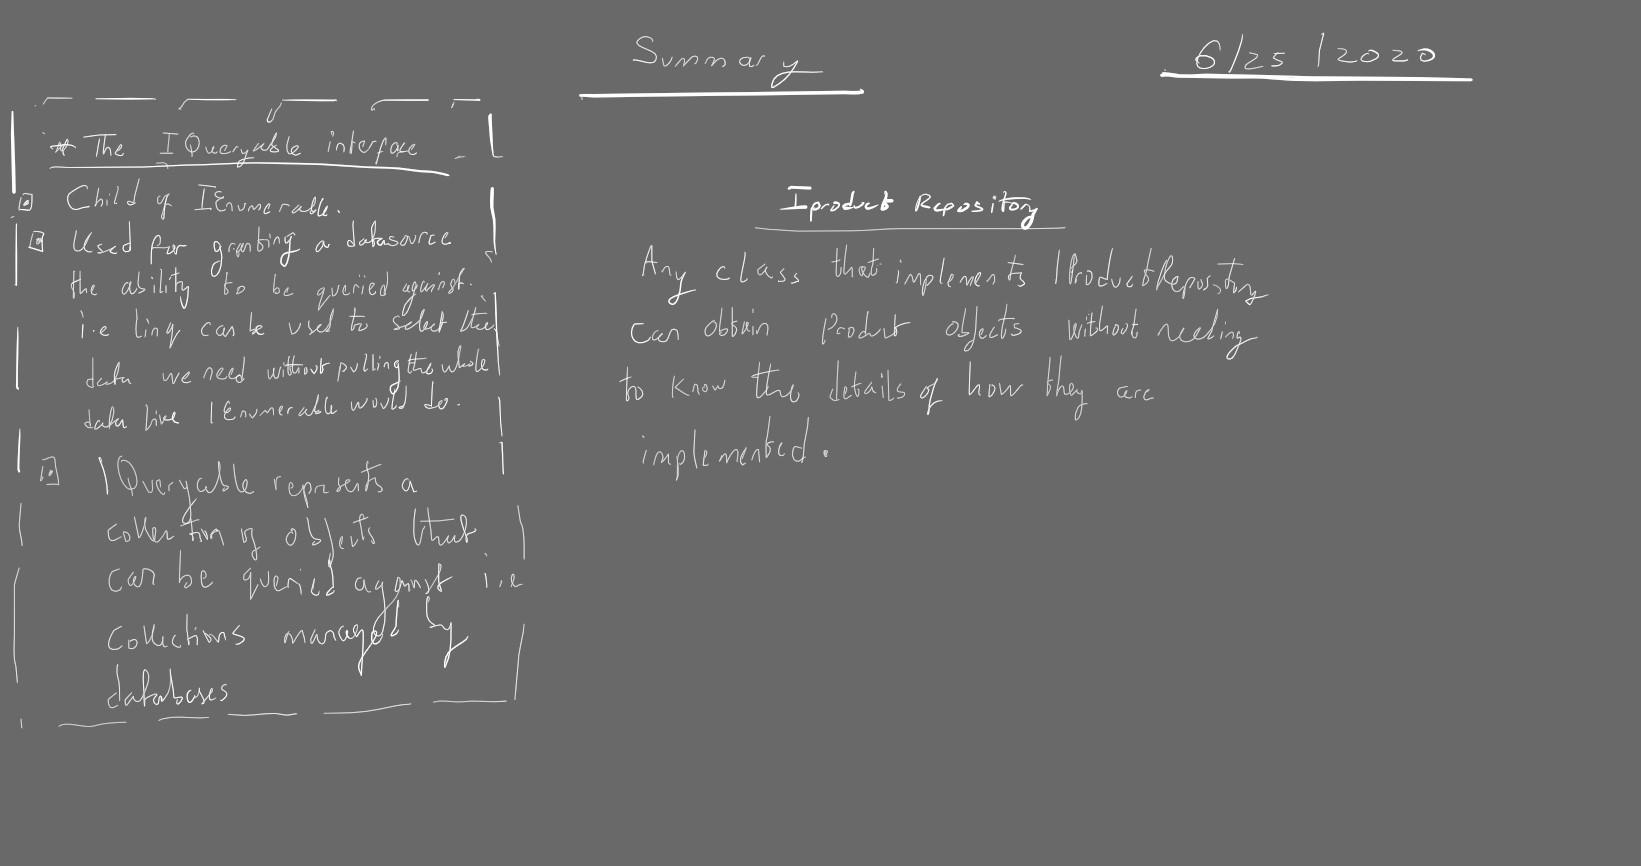 Summary
6/25/2020
* The IQueryable interface
Child of IEnumerable.
Used for granting a datasource
the ability to be queried against.
i.e linq can be used to select the
data we need without pulling the whole
data like IEnumerable would do.
IQueryable represents a
collection of objects that
can be queried against i.e
collections managed by
databases
Iproduct Repository
Any class that implements IProductRepository
can obtain Product objects without needing
to know the details of how they are
implemented.